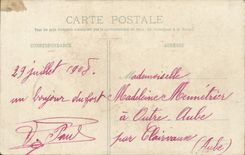 CARTE POSTALE
CORRESPONDANCE
ADRESSE
29 juillet 1905.
un bonjour du fort
Paul
Mademoiselle
Madeleine Mennétrier
à Outre Aube
par Clairvaux
(Aube)